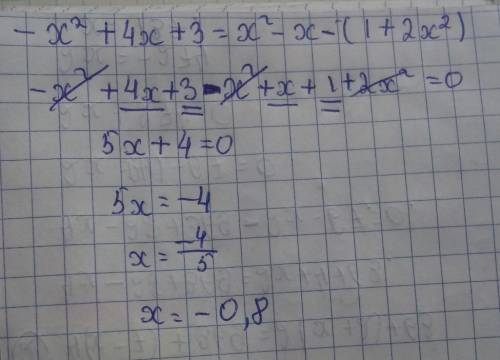 -x² + 4x + 3 = x² - x - (1 + 2x²)
-x² + 4x + 3 - x² + x + 1 + 2x² = 0
5x + 4 = 0
5x = -4
x = -4/5
x = -0,8